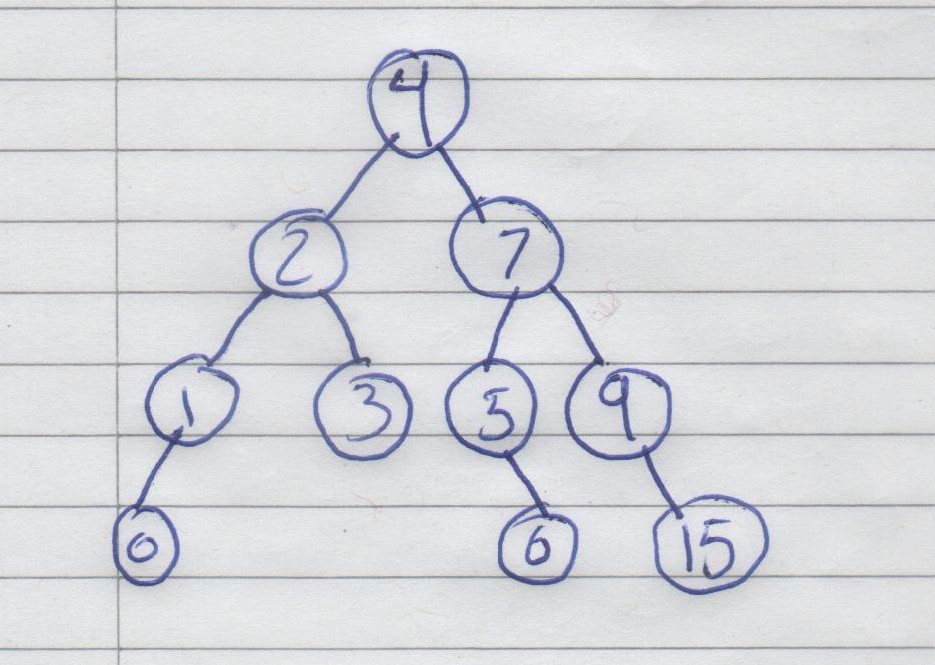 4
2 7
1 3 5 9
0 6 15